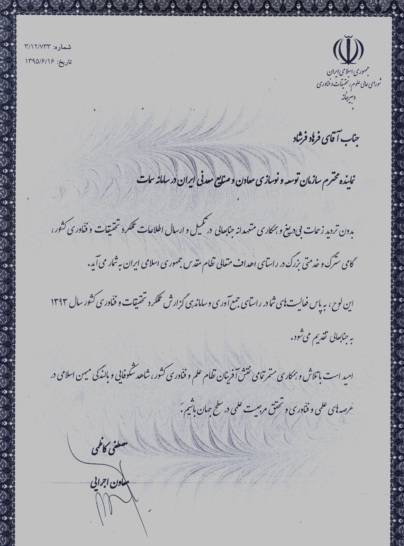 شماره: ۳/۱۲/۷۳۳
تاریخ: ۱۳۹۵/۶/۱۶
جمهوری اسلامی ایران
شورای عالی علوم، تحقیقات و فناوری
دبیرخانه
جناب آقای فرهاد فرشاد
نماینده محترم سازمان توسعه و نوسازی معادن و صنایع معدنی ایران در سامانه سمات
بدون تردید زحمات بی‌دریغ و همکاری متعهدانه جنابعالی در تکمیل و ارسال اطلاعات عملکرد تحقیقات و فناوری کشور،
گامی سترگ و خدمتی بزرگ در راستای اهداف متعالی نظام مقدس جمهوری اسلامی ایران به شمار می‌آید.
این لوح، به پاس فعالیت‌های شما در راستای جمع‌آوری و ساماندهی گزارش عملکرد تحقیقات و فناوری کشور سال ۱۳۹۳
به جنابعالی تقدیم می‌شود.
امید است با تلاش و همکاری مستمر تمامی نقش‌آفرینان نظام علم و فناوری کشور، شاهد شکوفایی و بالندگی میهن اسلامی در
عرصه‌های علمی و فناوری و تحقق مرجعیت علمی در سطح جهان باشیم.
مصطفی کاظمی
معاون اجرایی